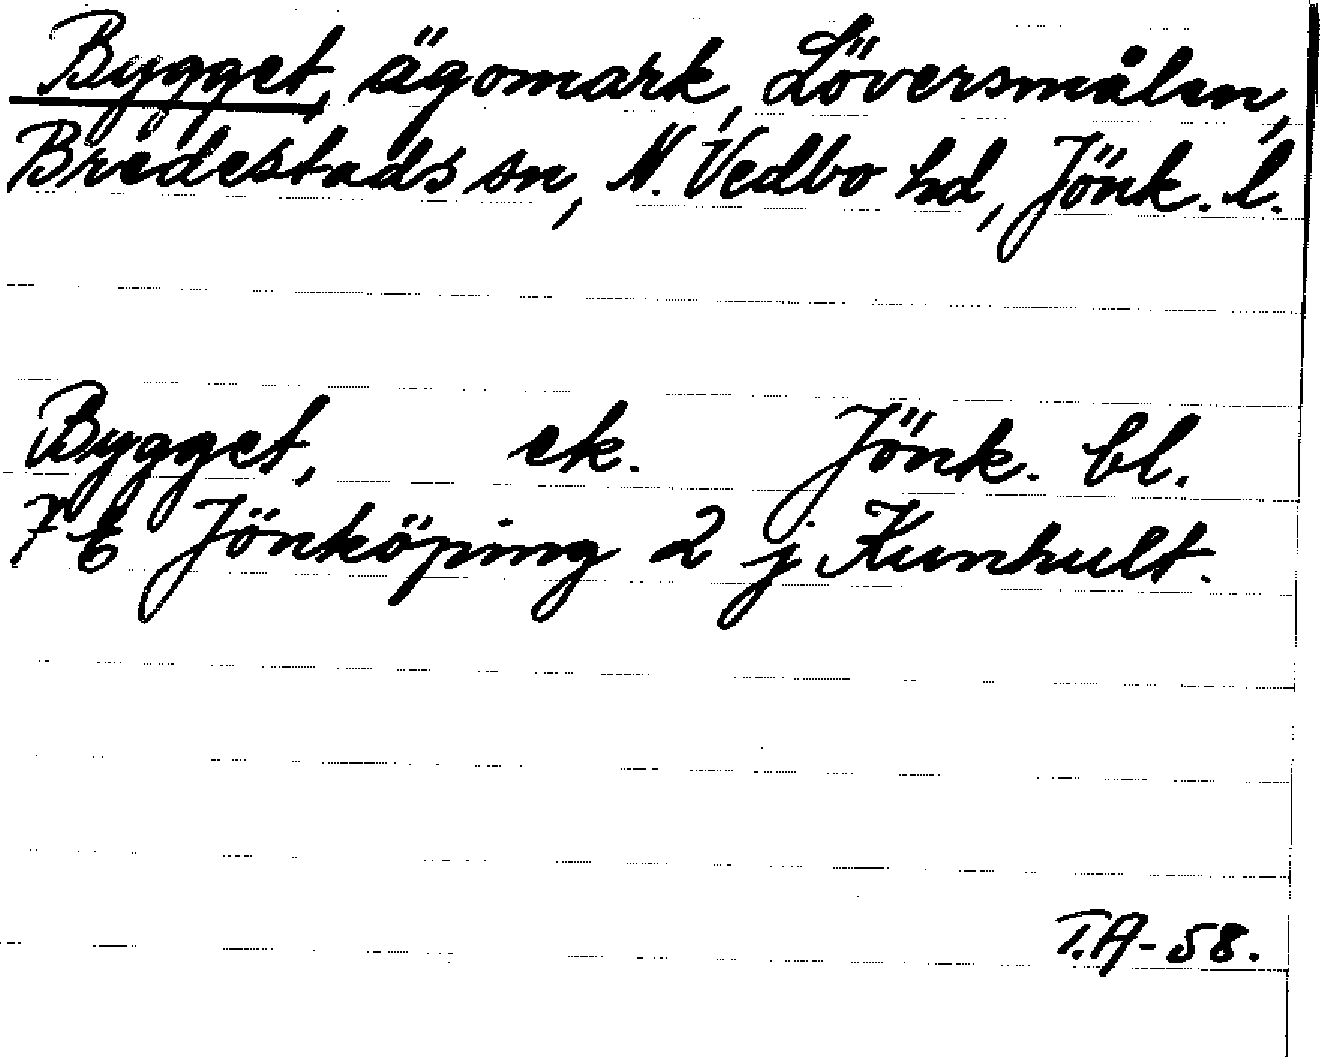 Bygget, ägomark, Löversmålen,
Bredestads sn, N. Vedbo hd, Jönk. l.
Bygget, ek. Jönk. bl.
7 E Jönköping 2 j Kunhult.
T.A-58.